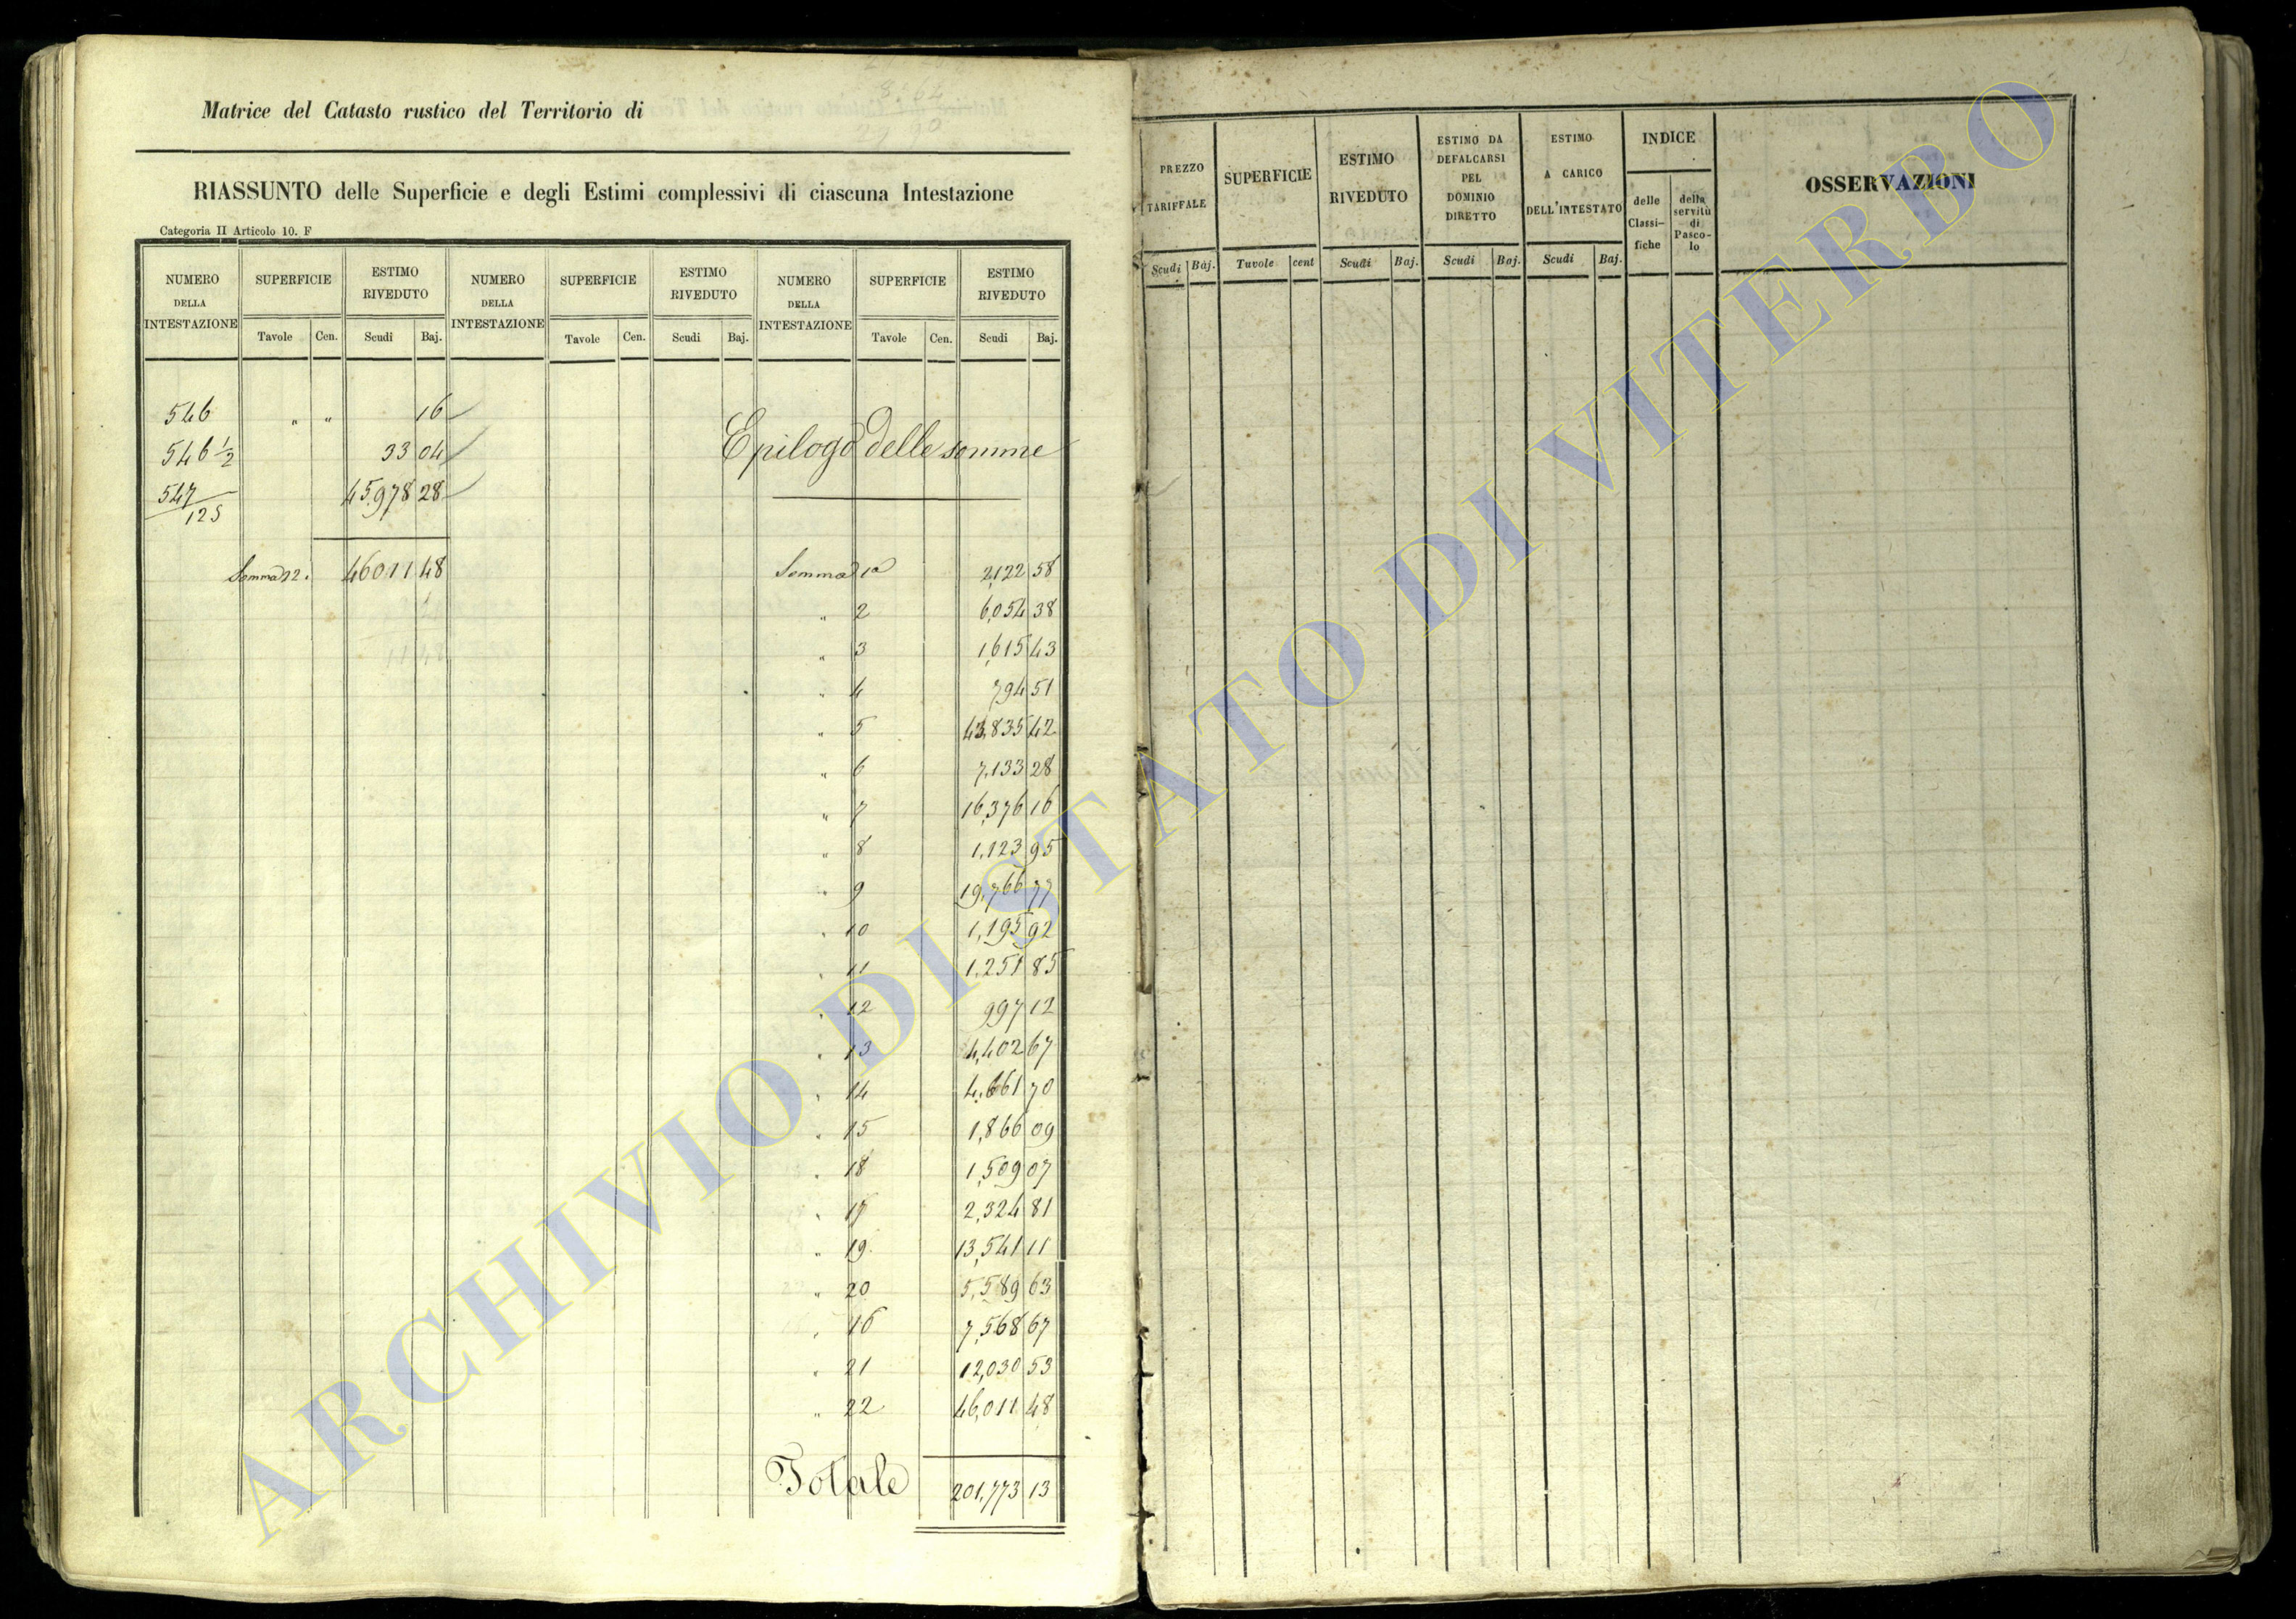 Matrice del Catasto rustico del Territorio di
RIASSUNTO delle Superficie e degli Estimi complessivi di ciascuna Intestazione
Categoria II Articolo 10. F
NUMERO DELLA INTESTAZIONE SUPERFICIE ESTIMO RIVEDUTO NUMERO DELLA INTESTAZIONE SUPERFICIE ESTIMO RIVEDUTO NUMERO DELLA INTESTAZIONE SUPERFICIE ESTIMO RIVEDUTO
Tavole Cen. Scudi Baj. Tavole Cen. Scudi Baj. Tavole Cen. Scudi Baj.
546 " " 16
546 1/2 33 04
547 45978 28
125
Somma 22. 46011 48
Epilogo delle somme
Somma 1a 2,122 58
" 2 6,054 38
" 3 1,615 43
" 4 794 51
" 5 43,835 42
" 6 7,133 28
" 7 16,376 16
" 8 1,123 95
" 9 19,766 77
" 10 1,195 92
" 11 1,251 85
" 12 997 12
" 13 4,402 67
" 14 4,661 70
" 15 1,866 09
" 18 1,509 07
" 17 2,324 81
" 19 13,541 11
" 20 5,589 63
" 16 7,568 67
" 21 12,030 53
" 22 46,011 48
Totale 201,773 13
PREZZO TARIFFALE SUPERFICIE ESTIMO RIVEDUTO ESTIMO DA DEFALCARSI PEL DOMINIO DIRETTO ESTIMO A CARICO DELL'INTESTATO INDICE OSSERVAZIONI
delle Classifiche della servitù di Pascolo
Scudi Baj. Tavole cent Scudi Baj. Scudi Baj. Scudi Baj.
ARCHIVIO DI STATO DI VITERBO